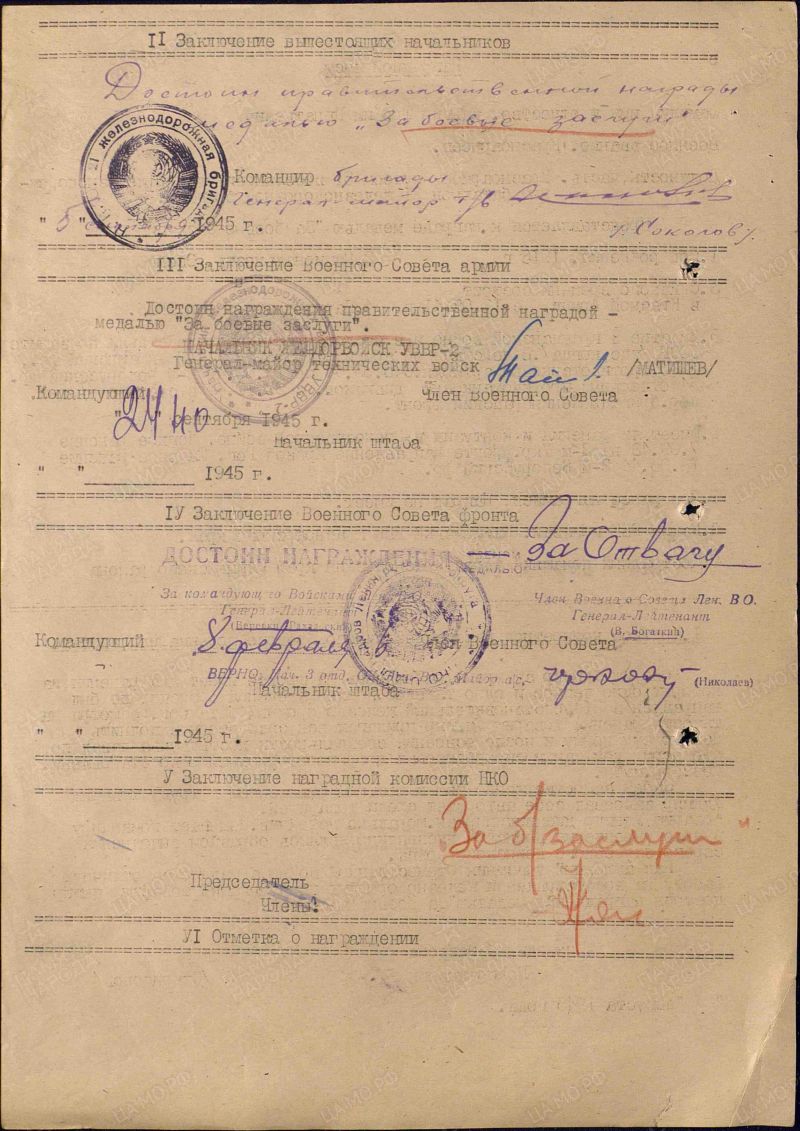 II Заключение вышестоящих начальников
Достоин правительственной награды
медалью „За боевые заслуги"
Командир бригады
Генерал-майор т/в
"5" сентября 1945 г. /Соколов/.
III Заключение Военного Совета армии
Достоин награждения правительственной наградой –
медалью "За боевые заслуги".
НАЧАЛЬНИК ЖЕЛДОРВОЙСК УВВР-2
Генерал-майор технических войск /МАТИШЕВ/
Командующий Член Военного Совета
сентября 1945 г.
Начальник штаба
" " 1945 г.
IУ Заключение Военного Совета фронта
ДОСТОИН НАГРАЖДЕНИЯ За Отвагу
За командующего Войсками Член Военного Совета Лен. ВО.
Генерал-Лейтенант Генерал-Лейтенант
(В. Богаткин)
Командующий 8 февраля Член Военного Совета
ВЕРНО: Нач. 3 отд. (Николаев)
Начальник штаба
" " 1945 г.
У Заключение наградной комиссии НКО
„За б/заслуги"
Председатель
Члены:
УI Отметка о награждении